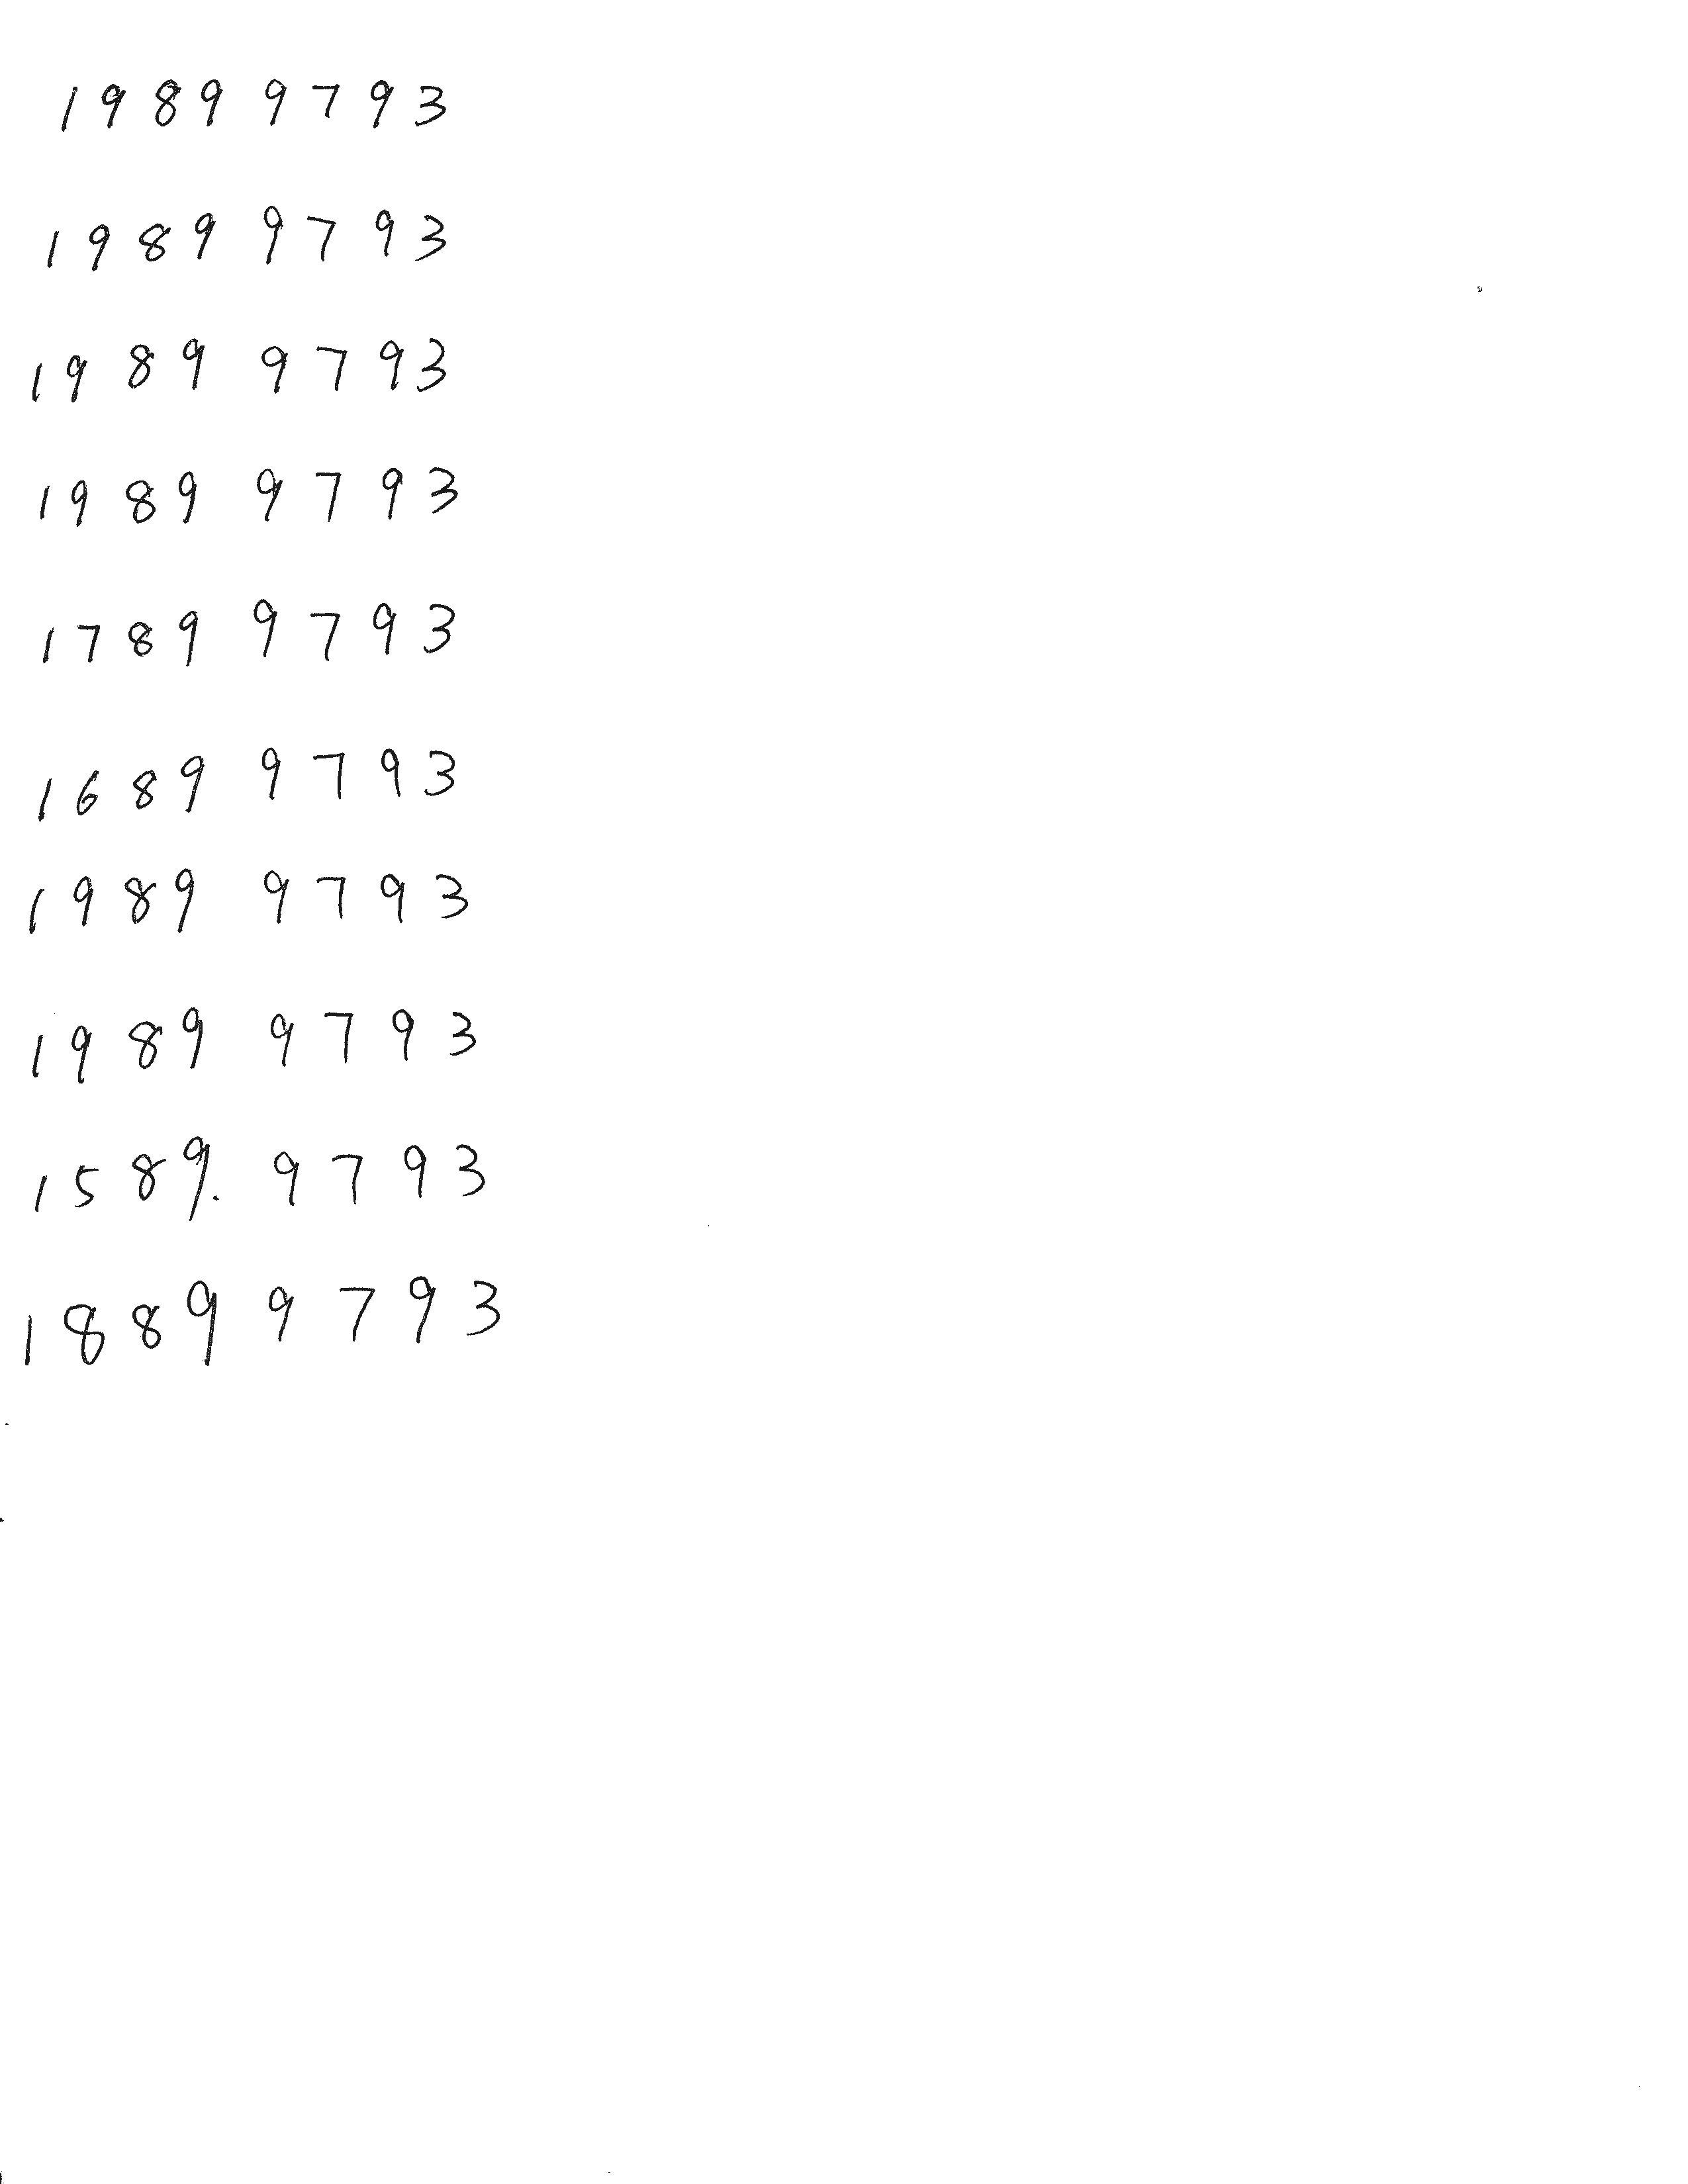 1989 9793
1989 9793
1989 9793
1989 9793
1789 9793
1689 9793
1989 9793
1989 9793
1589. 9793
1889 9793